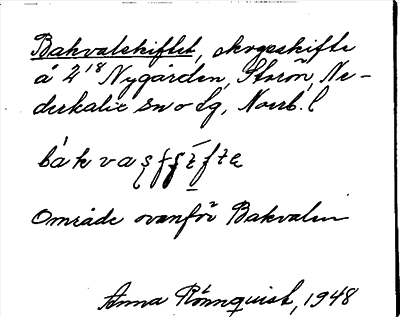 Bakvalskiftet, skogsskifte
å 2¹⁸ Nygården, Storön, Ne-
derkalix sn o lg, Norrb. l
Område ovanför Bakvalen
Anna Rönnquist, 1948